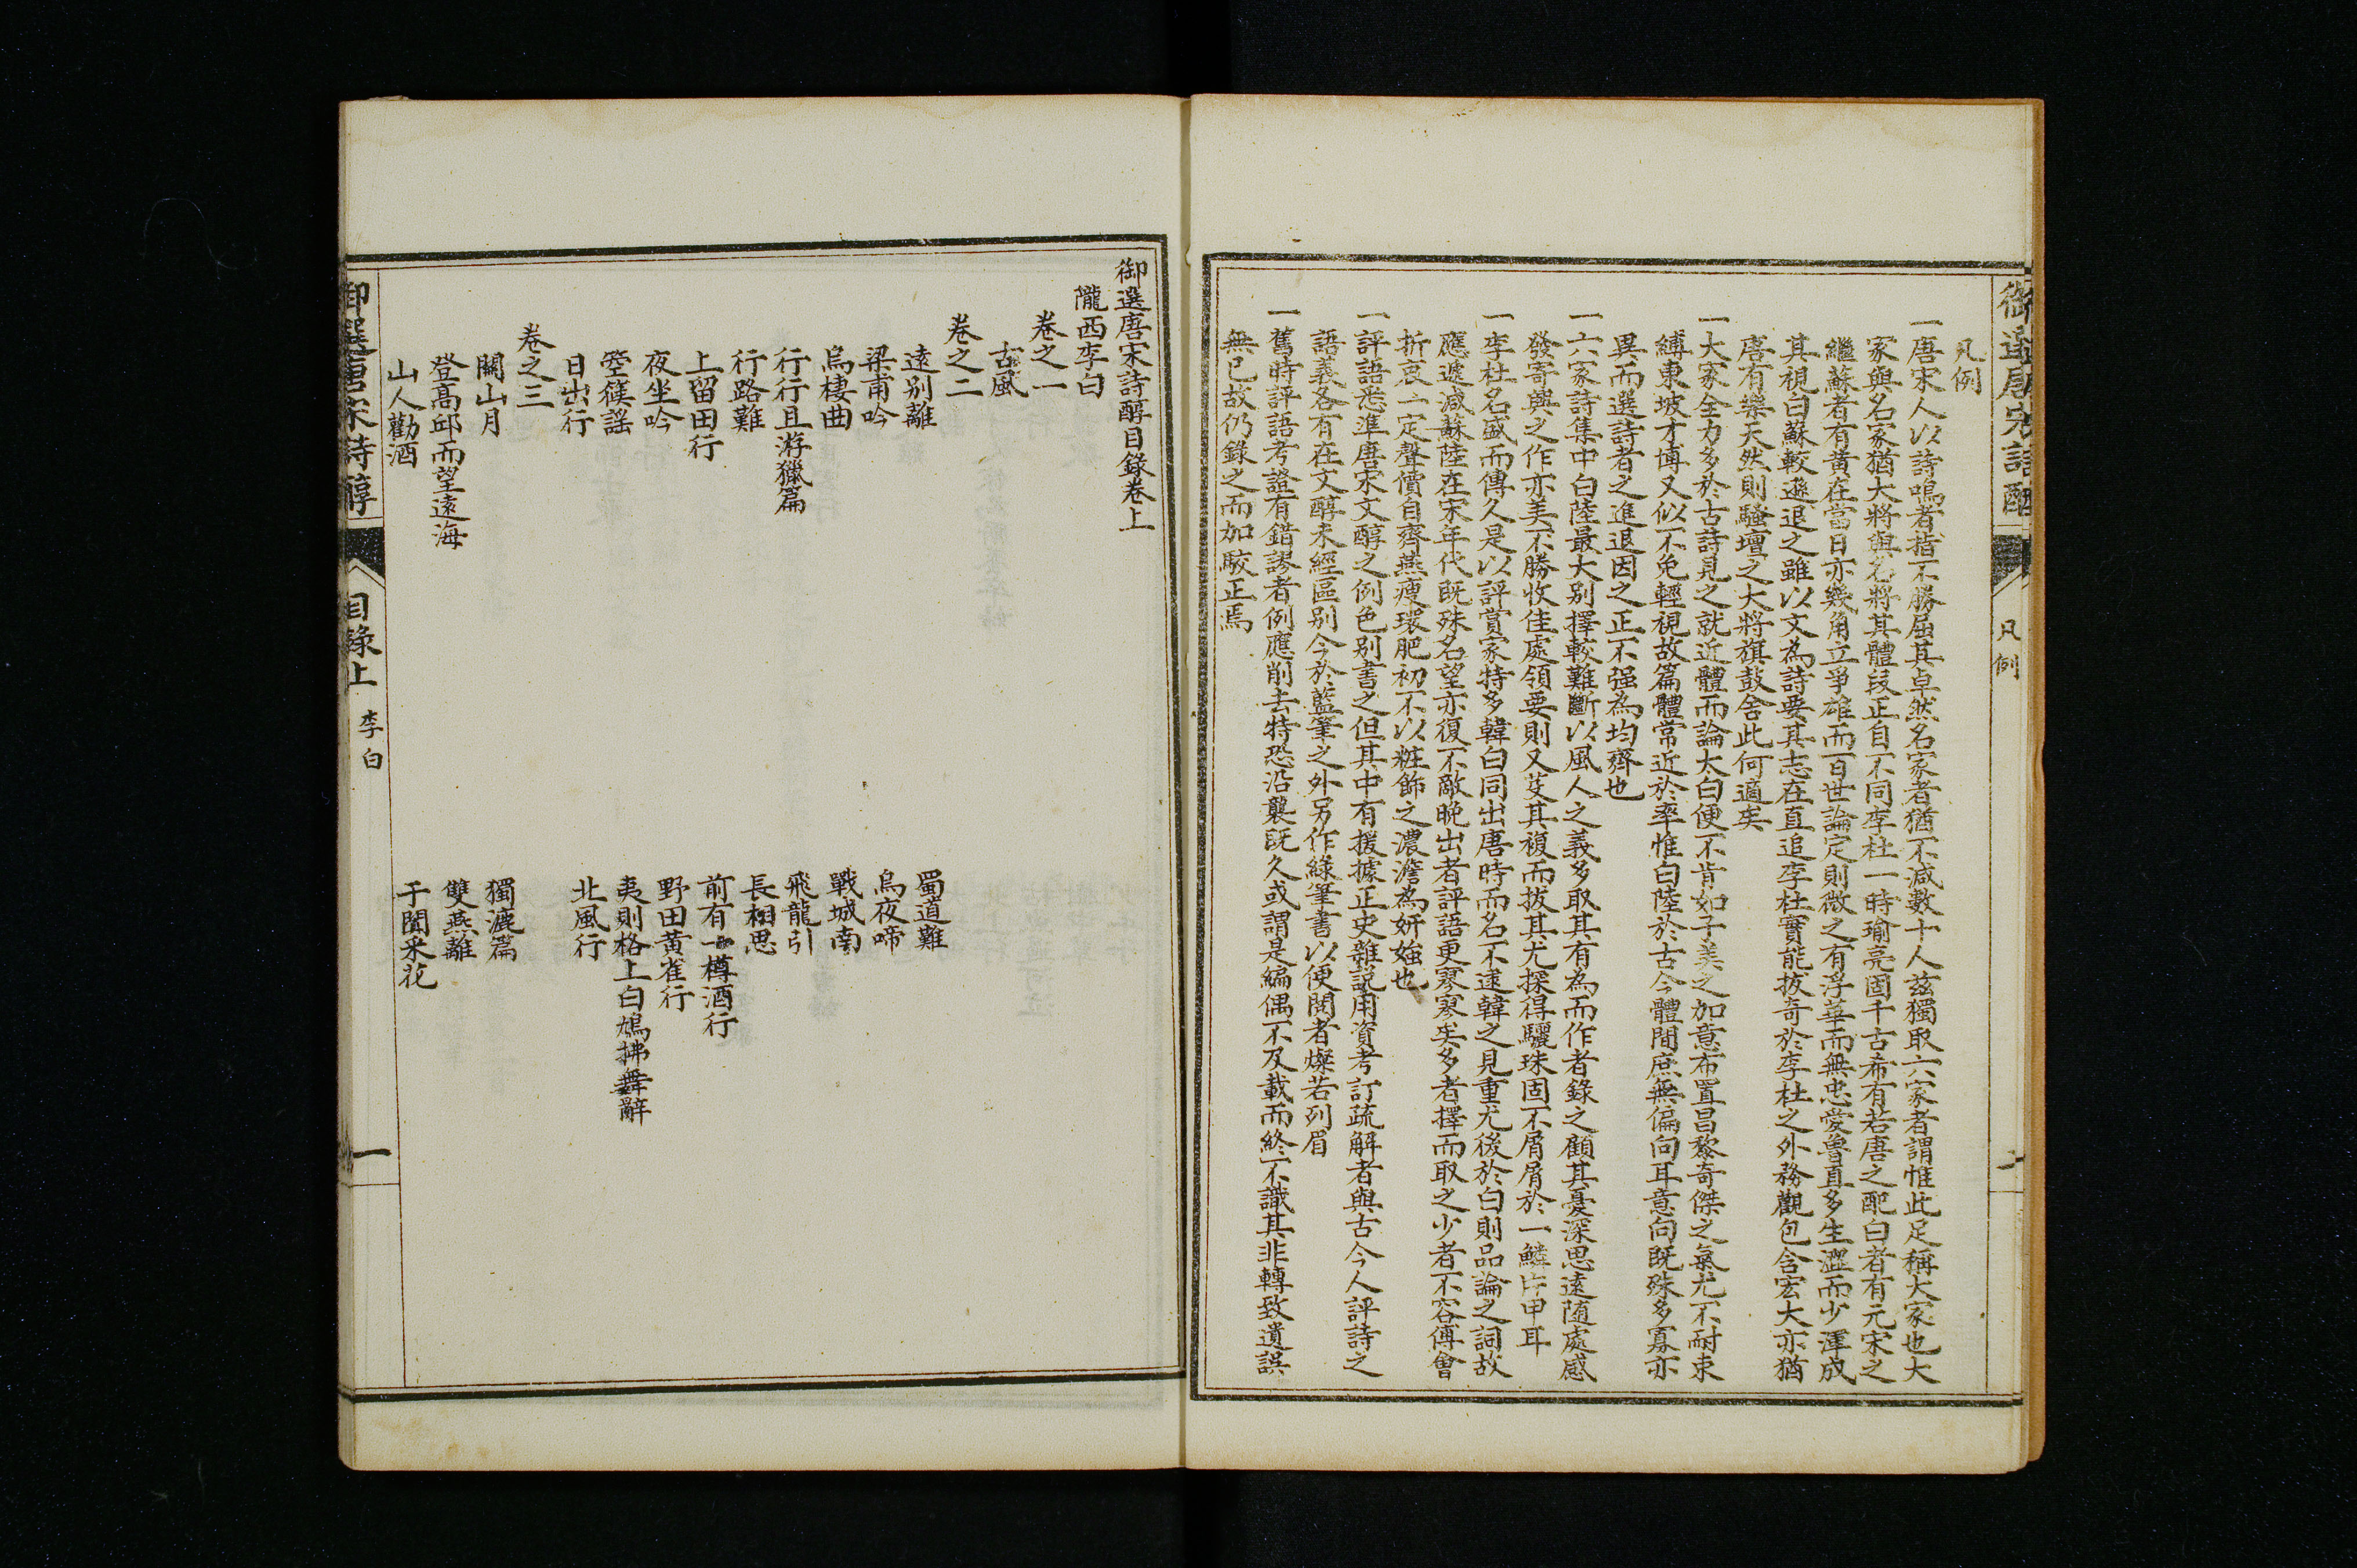 御選唐宋詩醇
凡例
二
凡例
一唐宋人以詩鳴者指不勝屈其卓然名家者猶不減數十人茲獨取六家者謂惟此足稱大家也大
家與名家猶大將與名將其體段正自不同李杜一時瑜亮固千古希有若唐之配白者有元宋之
繼蘇者有黃在當日亦幾角立爭雄而百世論定則微之有浮華而無忠愛魯直多生澀而少渾成
其視白蘇較遜退之雖以文為詩要其志在直追李杜實能拔奇於李杜之外務觀包含宏大亦猶
唐有樂天然則騷壇之大將旗鼓舍此何適矣
一大家全力多於古詩見之就近體而論太白便不肯如子美之加意布置昌黎奇傑之氣尤不耐束
縛東坡才博又似不免輕視故篇體常近於率惟白陸於古今體間庶無偏向耳意向既殊多寡亦
異而選詩者之進退因之正不强為均齊也
一六家詩集中白陸最大別擇較難斷以風人之義多取其有為而作者錄之顧其憂深思遠随處感
發寄興之作亦美不勝收佳處領要則又芟其複而拔其尤探得驪珠固不屑屑於一鱗片甲耳
一李杜名盛而傳久是以評賞家特多韓白同出唐時而名不逮韓之見重尤後於白則品論之詞故
應遞減蘇陸在宋年代既殊名望亦復不敵晚出者評語更寥寥矣多者擇而取之少者不容傅會
折衷一定聲價自齊燕瘦環肥初不以粧飾之濃澹為妍媸也
一評語悉準唐宋文醇之例色別書之但其中有援據正史雜說用資考訂疏解者與古今人評詩之
語義各有在文醇未經區別今於藍筆之外另作綠筆書以便閱者燦若列眉
一舊時評語考證有錯謬者例應削去特恐沿襲既久或謂是編偶不及載而終不識其非轉致遺誤
無已故仍錄之而加駮正焉
御選唐宋詩醇目錄卷上
隴西李白
卷之一
古風
卷之二
遠別離
蜀道難
梁甫吟
烏夜啼
烏棲曲
戰城南
行行且游獵篇
飛龍引
行路難
長相思
上留田行
前有一樽酒行
夜坐吟
野田黃雀行
箜篌謠
夷則格上白鳩拂舞辭
日出行
北風行
卷之三
關山月
獨漉篇
登高邱而望遠海
雙燕離
山人勸酒
于闐采花
御選唐宋詩醇
目錄上
李白
一